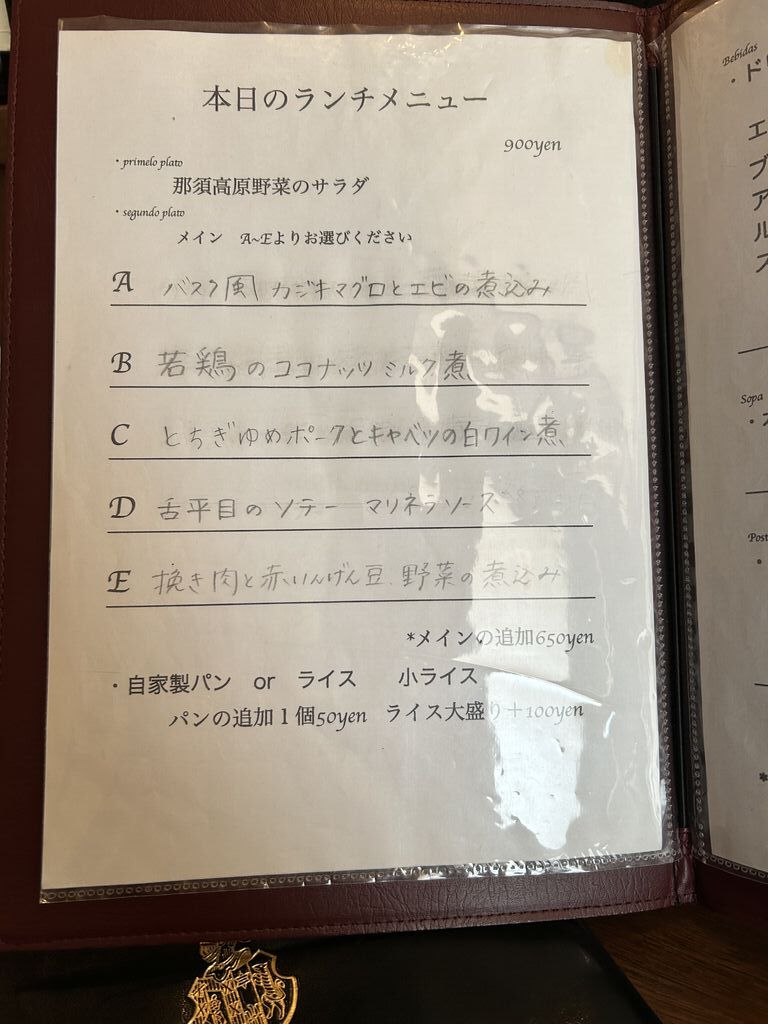 本日のランチメニュー
900yen
・primelo plato
那須高原野菜のサラダ
・segundo plato
メイン A~Eよりお選びください
A バスク風 カジキマグロとエビの煮込み
B 若鶏のココナッツミルク煮
C とちぎゆめポークとキャベツの白ワイン煮
D 舌平目のソテー マリネラソース
E 挽き肉と赤いんげん豆、野菜の煮込み
*メインの追加650yen
・自家製パン or ライス 小ライス
パンの追加1個50yen ライス大盛り+100yen
Bebidas
・ド
エ
ブ
ア
ル
ス
Sopa
Post